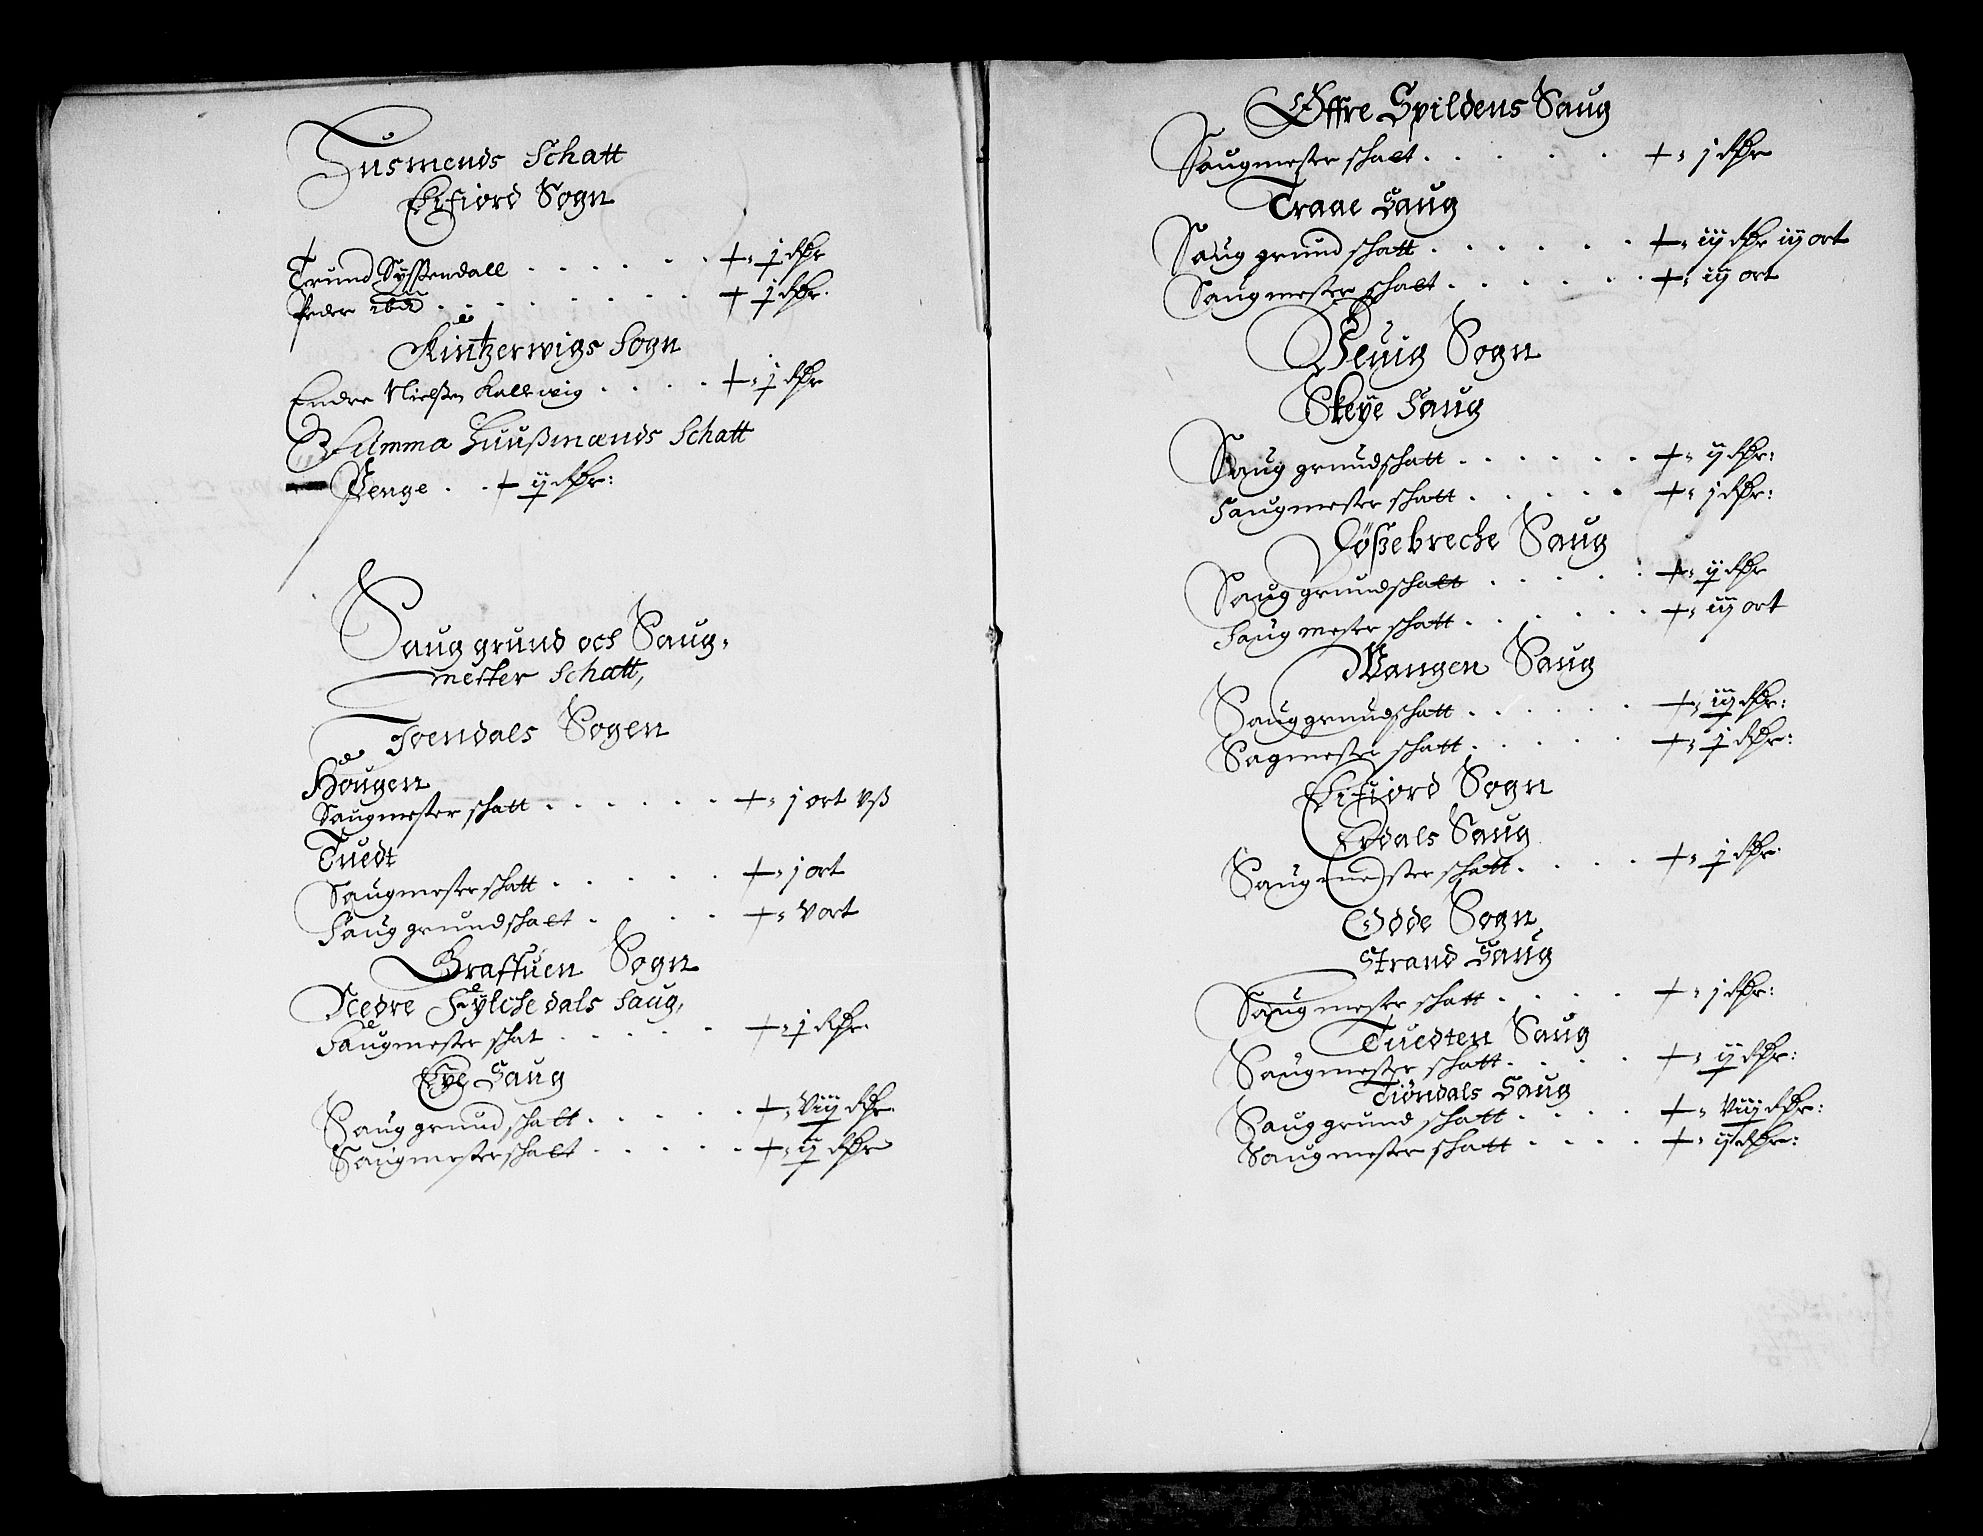 Husmends Schatt
Eifiord Sogn
Trund Syssendall . . . . . + - j dlr
Peder ibd . . . . . . . + j dlr.
Kintzerwigs Sogn
Endre Nielsen Kallwig . . . . + - j dlr
Summa Huußmænds Schatt
Penge . . + ij dlr:
Saug grund och Saug-
mester Schatt,
Joendals Sogen
Hougen
Saugmester schatt . . . . . . + - j ort vß
Tuedt
Saugmester schatt . . . . . + - j ort
Saug grundschatt . . . . + - v ort
Graffuen Sogn
Nedre Fylchedals Saug,
Saugmester schat . . . . . + - j dlr.
Eye Saug
Saug grund schatt . . . . . + - viij dlr.
Saugmester schatt . . . . . + - ij dlr
Øffre Spildens Saug
Saugmester schatt . . . . . + - j dlr
Traae Saug
Saug grund schatt . . . . . . + - iij dlr iij ort
Saugmester schatt . . . . . . + - iij ort
Uluig Sogn
Skeye Saug
Saug grundschatt . . . . . . + - ij dlr:
Saugmester schatt . . . . . + - j dlr:
Oößebreche Saug
Saug grundschatt . . . . . + - ij dlr
Saug mester schatt . . . . . . + - iij ort
Wangen Saug
Saug grundschatt . . . . . + - iij dlr:
Sagmester schatt . . . . . + - j dlr:
Eifiord Sogn
Erdals Saug
Saugmester schatt . . . . + - j dlr.
Odde Sogn
Strand Saug
Saugmester schatt . . . . + - j dlr:
Tuedten Saug
Saugmester schatt . . . . + - ij dlr:
Tiöndals Saug
Saug grund schatt . . . . + - viij dlr:
Saugmester schatt . . . . + - ij dlr: